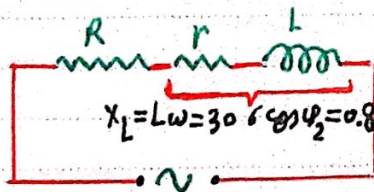 R r L
X_L=Lω=30 6 cosφ_2=0.8
~